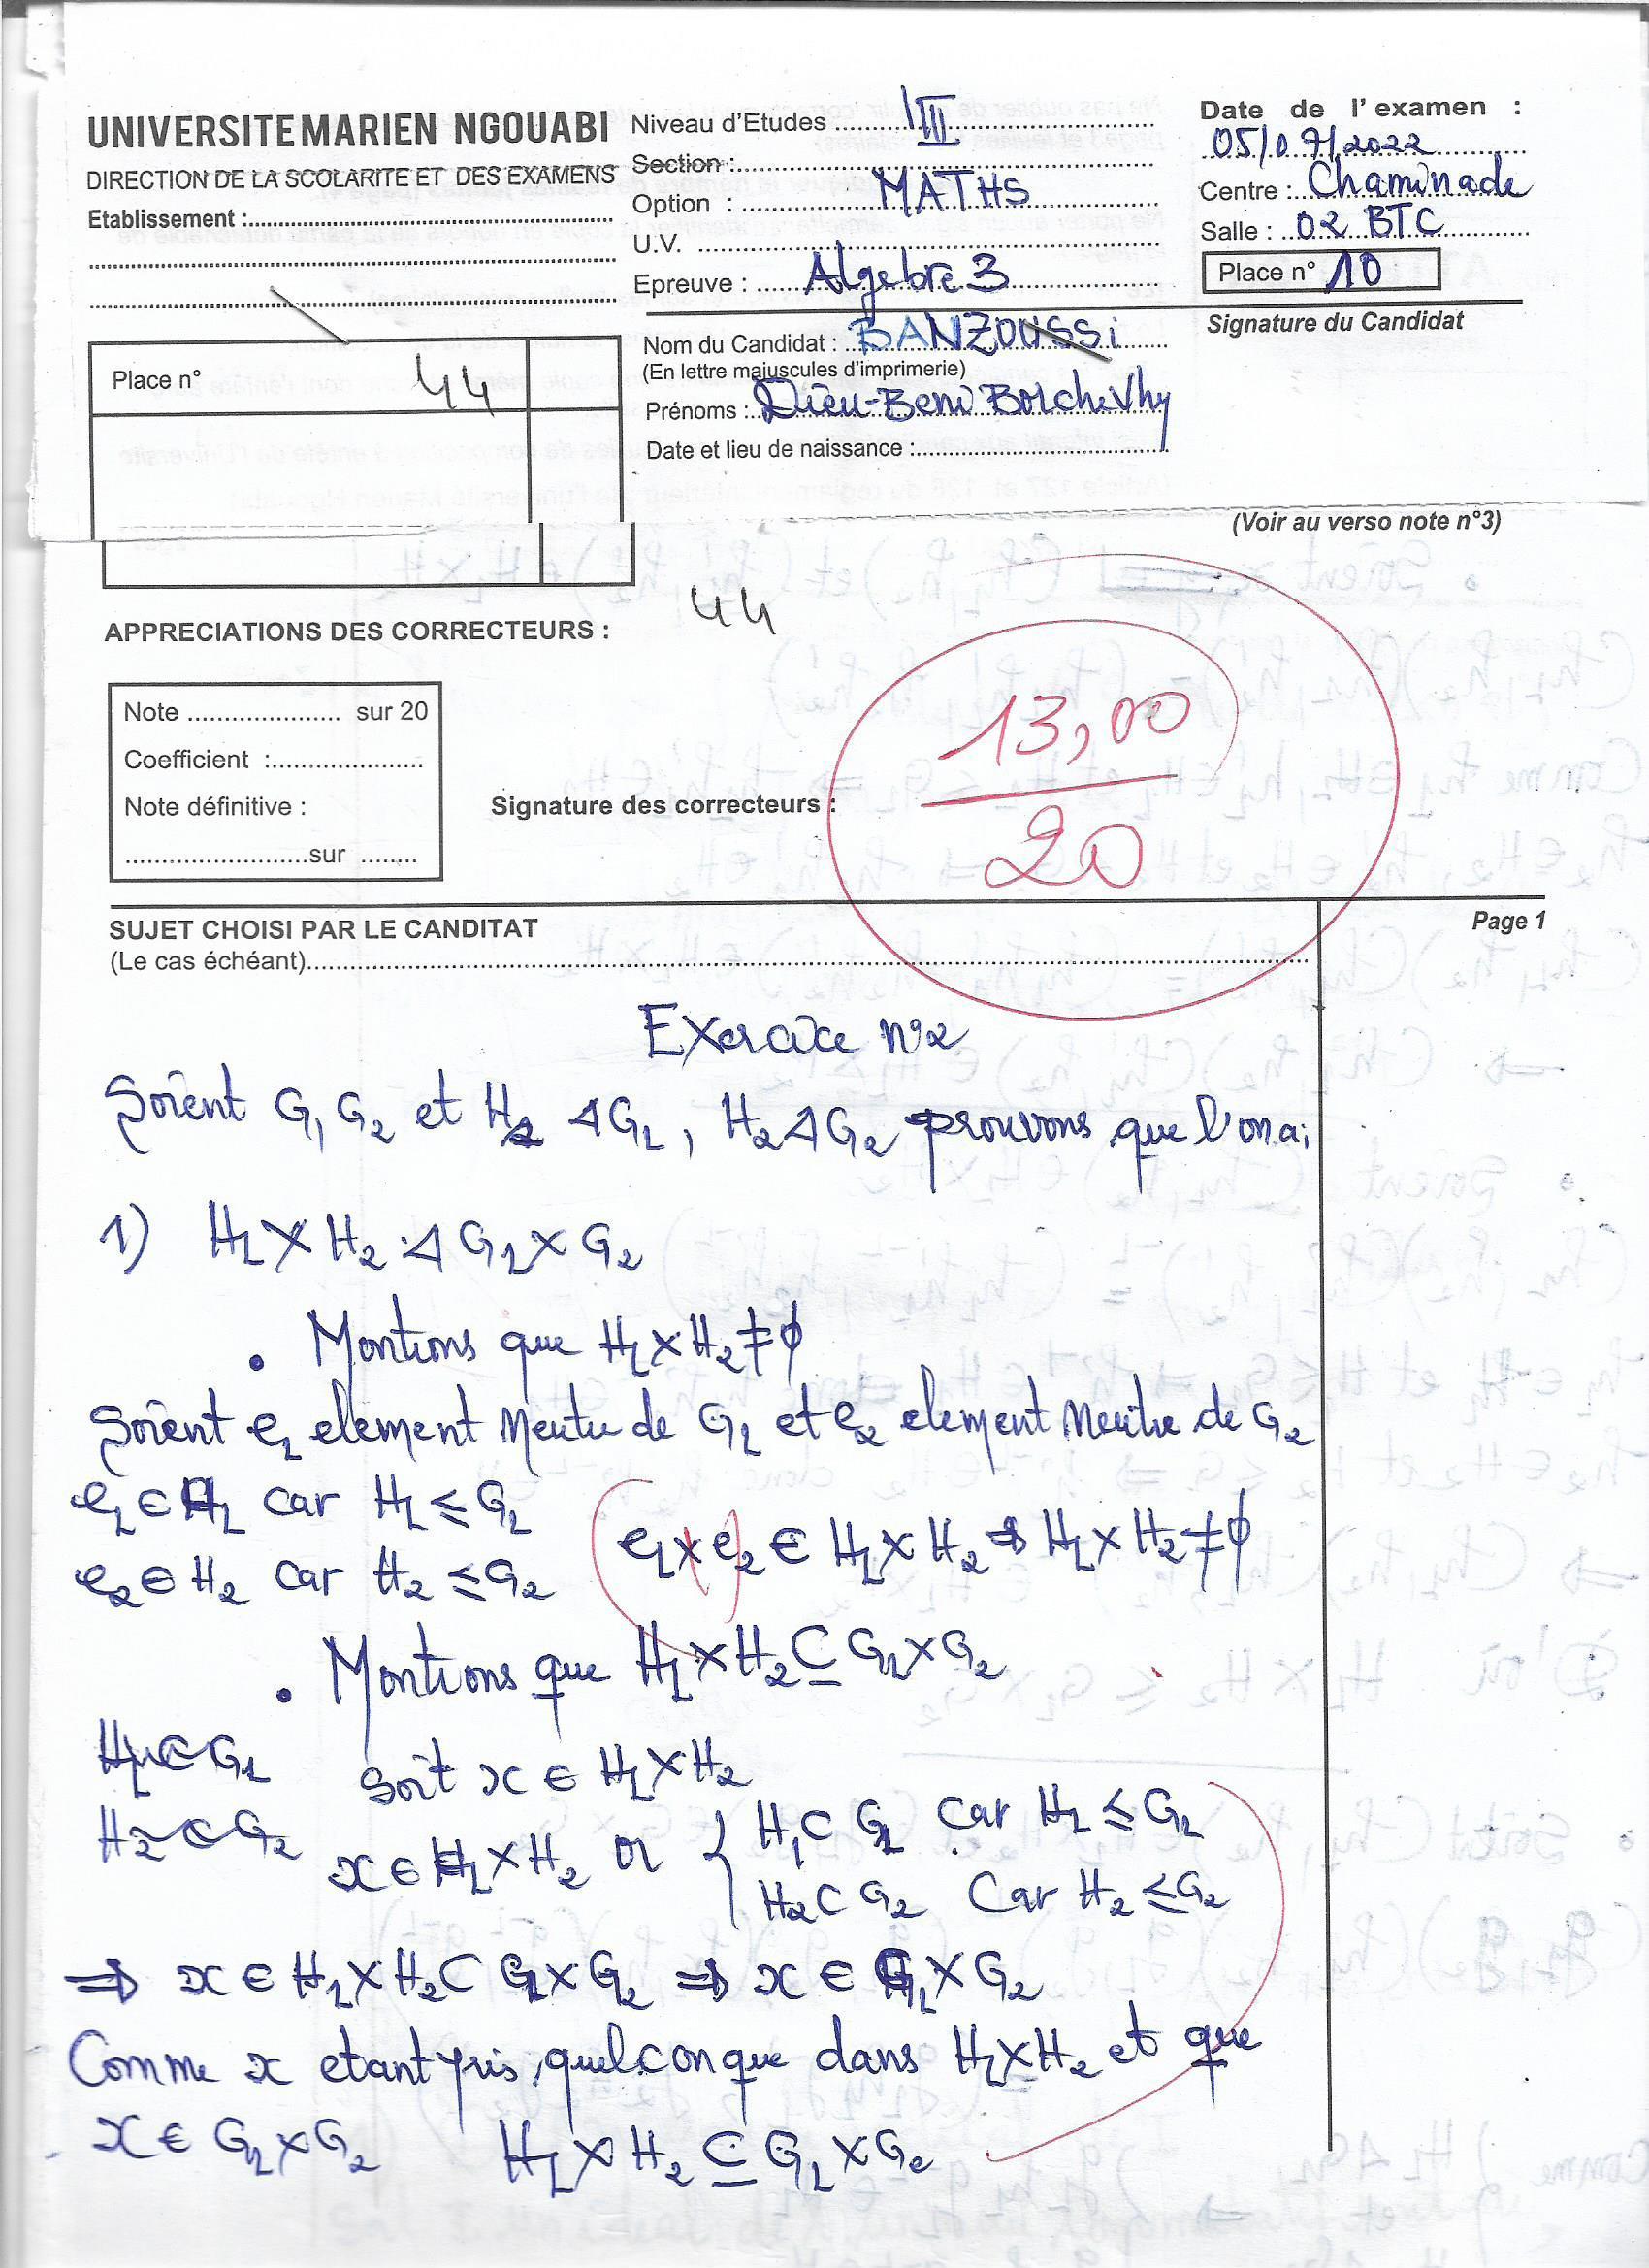 UNIVERSITE MARIEN NGOUABI
DIRECTION DE LA SCOLARITE ET DES EXAMENS
Etablissement :
Niveau d'Etudes III
Section :
Option : MATHS
U.V.
Epreuve : Algebre 3
Date de l'examen :
05/07/2022
Centre : Chaminade
Salle : 02 BTC
Place n° 10
Signature du Candidat
Nom du Candidat : BANZOUSSi
(En lettre majuscules d'imprimerie)
Prénoms : Dieu-Beni Bolchevhy
Date et lieu de naissance :
Place n° 44
(Voir au verso note n°3)
44
APPRECIATIONS DES CORRECTEURS :
Note sur 20
Coefficient :
Note définitive :
sur
Signature des correcteurs :
13,00
20
SUJET CHOISI PAR LE CANDITAT
(Le cas échéant)
Page 1
Exercice n°2
Soient G₁ G₂ et H₁ ⊲ G₁, H₂ ⊲ G₂ prouvons que l'on a;
1) H₁ × H₂ ⊲ G₁ × G₂
• Montrons que H₁ × H₂ ≠ ∅
Soient e₁ element neutre de G₁ et e₂ element neutre de G₂
e₁ ∈ H₁ car H₁ ≤ G₁
e₂ ∈ H₂ car H₂ ≤ G₂
e₁ × e₂ ∈ H₁ × H₂ ⇒ H₁ × H₂ ≠ ∅
• Montrons que H₁ × H₂ ⊆ G₁ × G₂
H₁ ⊂ G₁
H₂ ⊂ G₂
soit x ∈ H₁ × H₂
x ∈ H₁ × H₂ or { H₁ ⊂ G₁ car H₁ ≤ G₁
H₂ ⊂ G₂ Car H₂ ≤ G₂
⇒ x ∈ H₁ × H₂ ⊂ G₁ × G₂ ⇒ x ∈ G₁ × G₂
Comme x etant pris quelconque dans H₁ × H₂ et que
x ∈ G₁ × G₂ H₁ × H₂ ⊆ G₁ × G₂